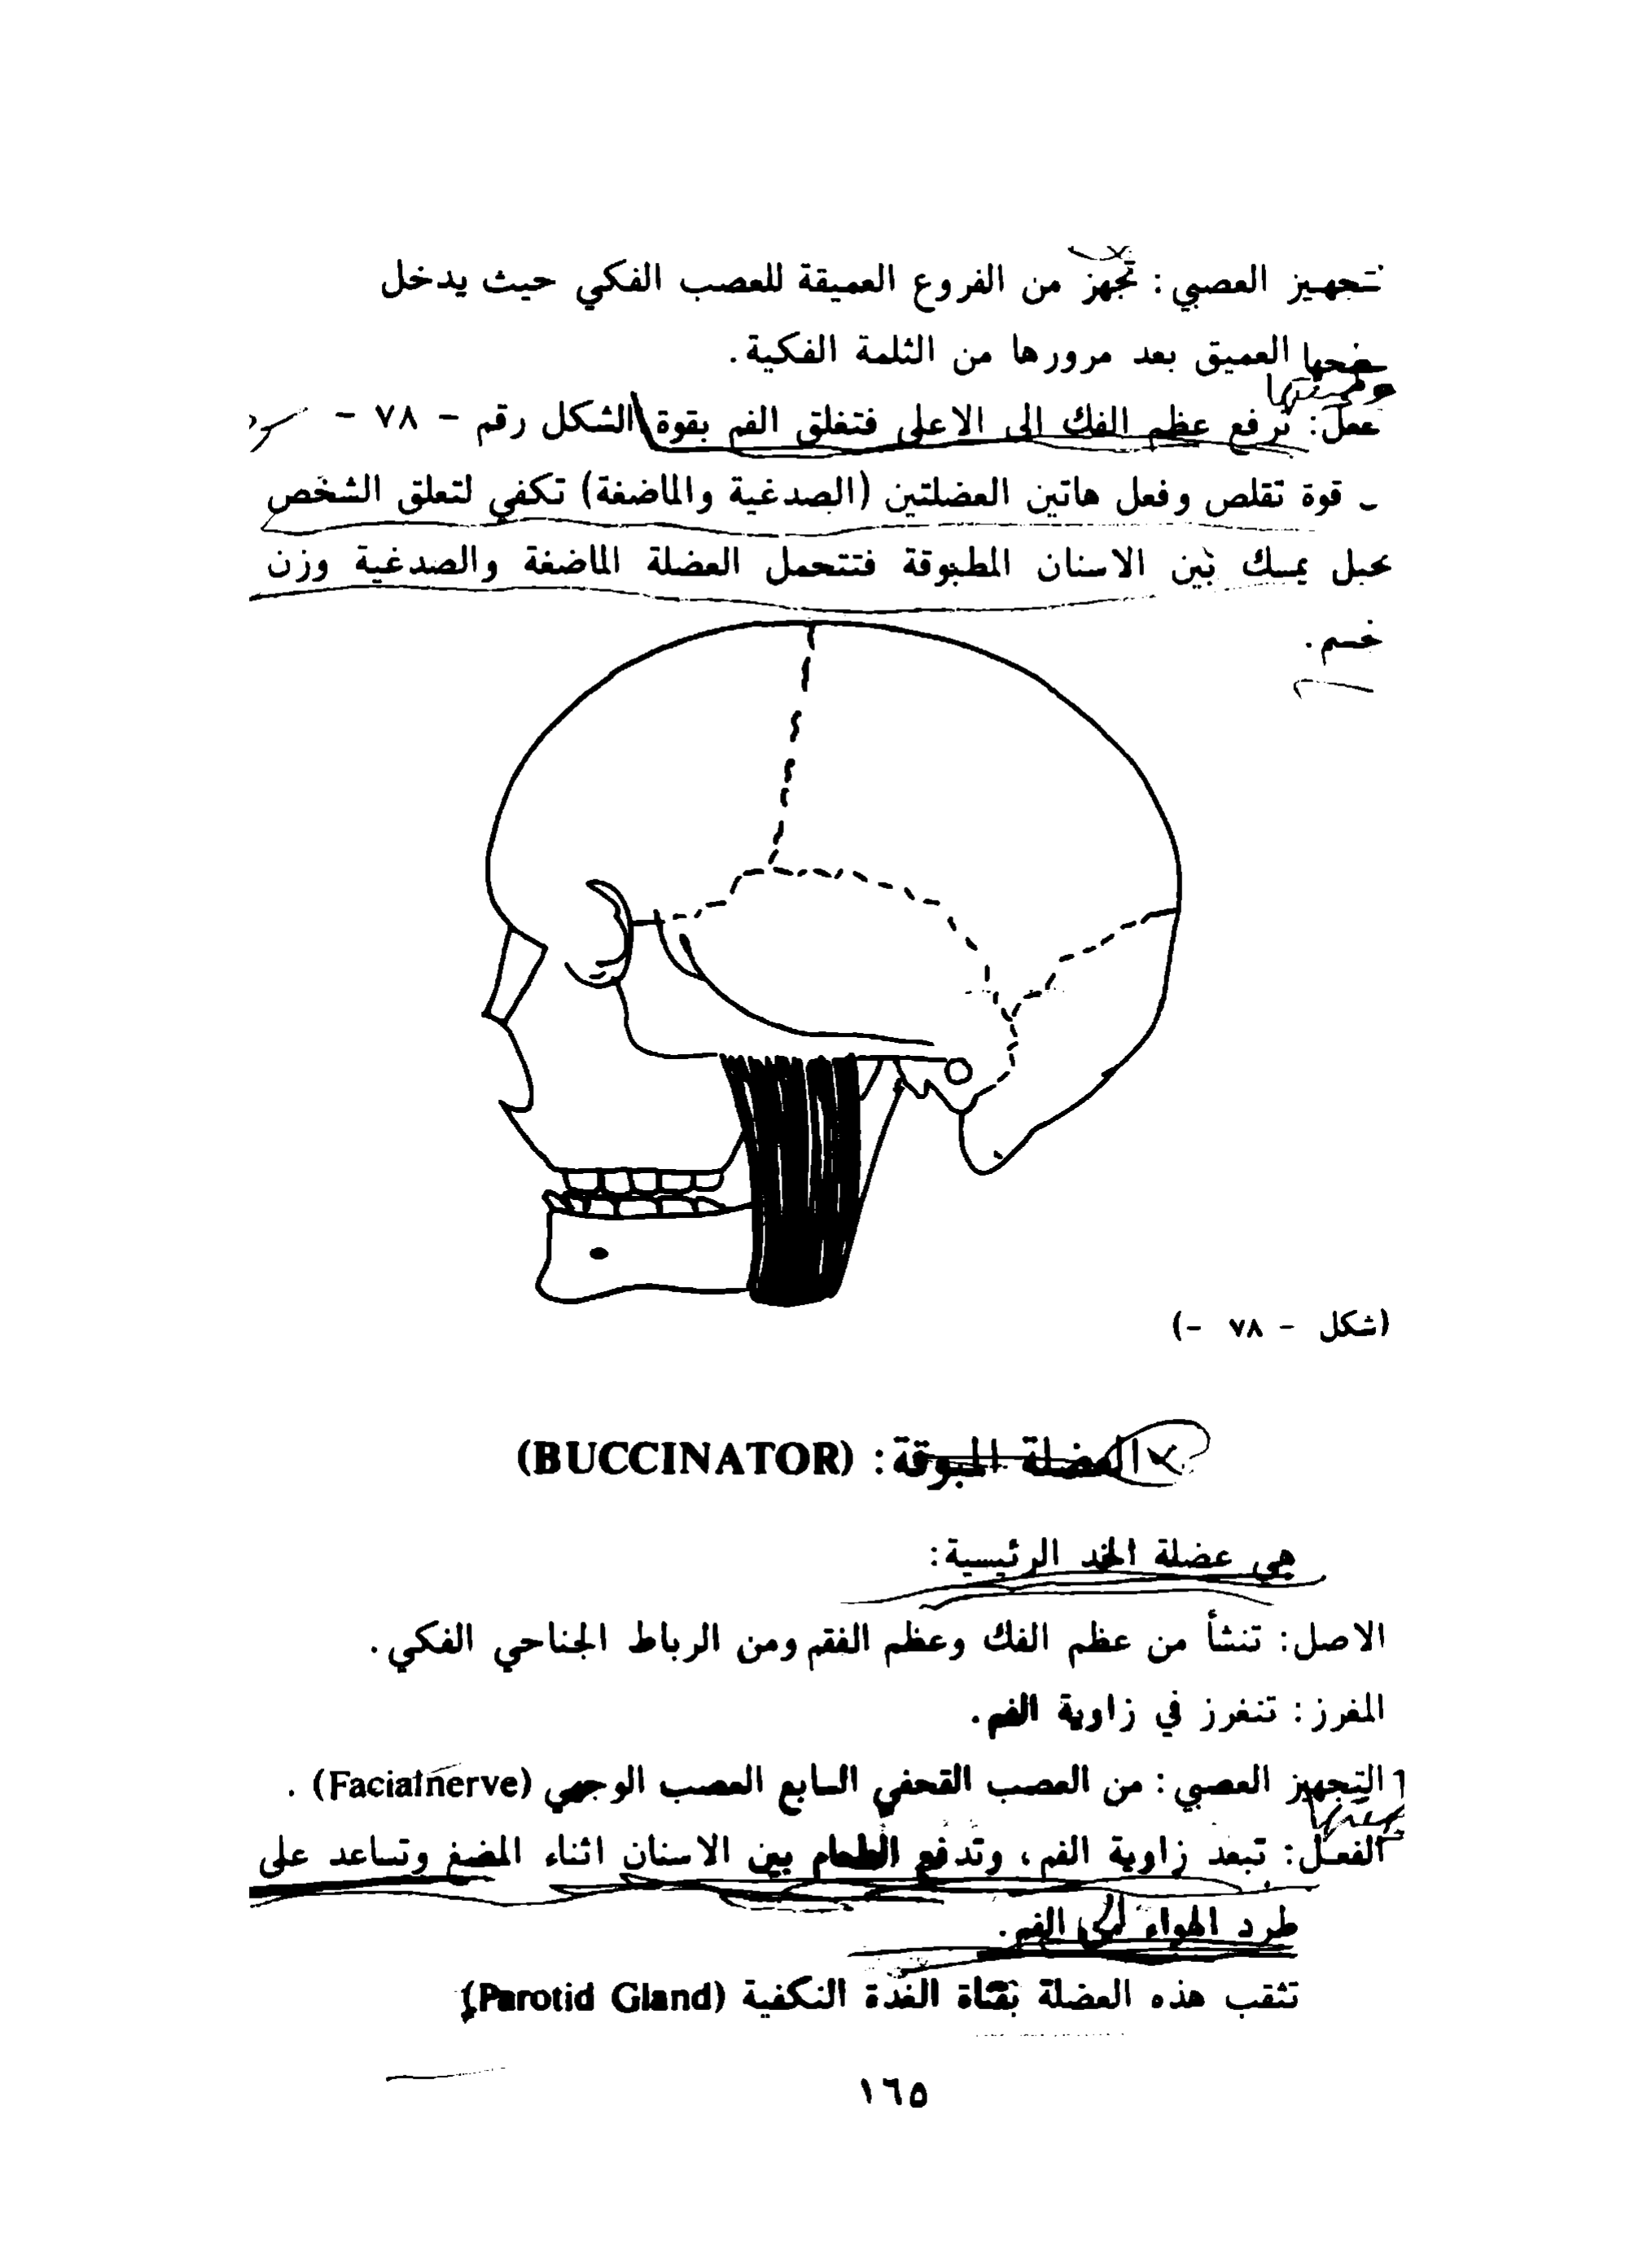 تجهيز العصبي : تجهز من الفروع العميقة للعصب الفكي حيث يدخل
سطحها العميق بعد مرورها من الثلمة الفكية .
عمل : ترفع عظم الفك الى الاعلى فتغلق الفم بقوة الشكل رقم - ٧٨ -
ـ قوة تقلص وفعل هاتين العضلتين (الصدغية والماضغة) تكفي لتعلق الشخص
بحبل يمسك بين الاسنان المطبوقة فتتحمل العضلة الماضغة والصدغية وزن
جسم .
(شكل - ٧٨ -)
العضلة المبوقة : (BUCCINATOR)
هي عضلة الخد الرئيسية :
الاصل : تنشأ من عظم الفك وعظم الفقم ومن الرباط الجناحي الفكي .
المغرز : تنغرز في زاوية الفم .
التجهيز العصبي : من العصب القحفي السابع العصب الوجهي (Facial nerve) .
الفعل : تبعد زاوية الفم ، وتدفع الطعام بين الاسنان اثناء المضغ وتساعد على
طرد الهواء الفم .
تثقب هذه العضلة بقناة الغدة النكفية (Parotid Gland)
١٦٥